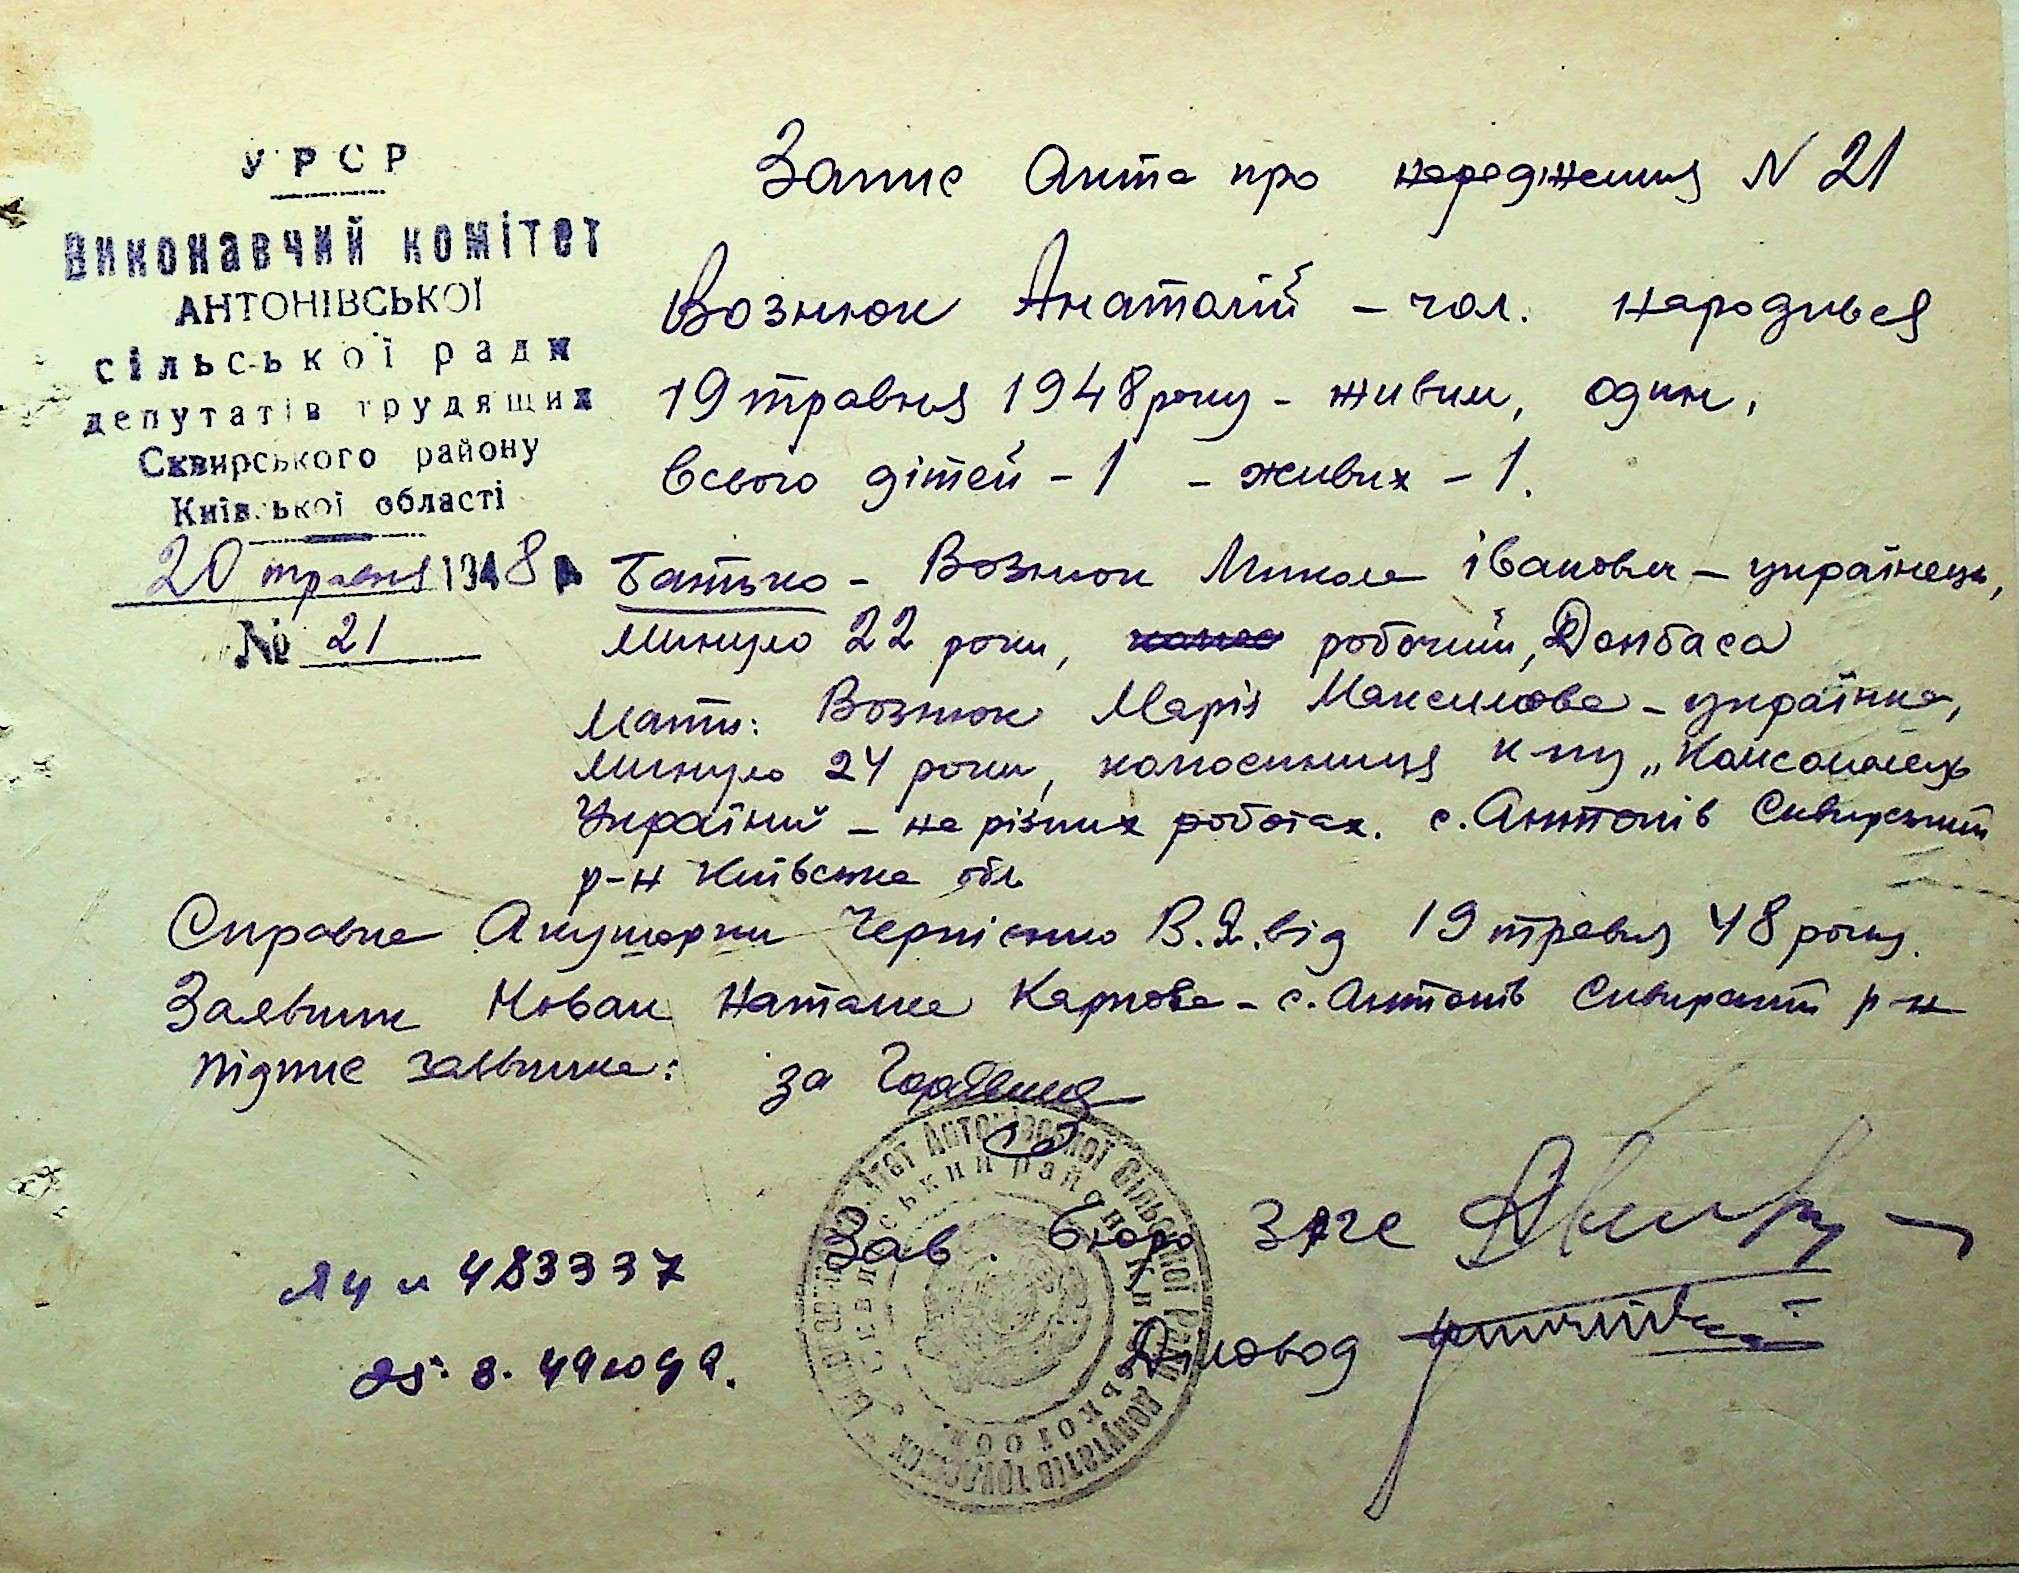 УРСР
Виконавчий комітет
АНТОНІВСЬКОЇ
сільської ради
депутатів трудящих
Сквирського району
Київської області
20 травня 1948 р
№ 21
Запис Акта про народження N 21
Вознюк Анатолій – чол. народився
19 травня 1948 року – живим, один,
всього дітей – 1 – живих – 1.
Батько – Вознюк Микола Іванович – українець,
минуло 22 роки, робочий, Донбаса
Мати: Вознюк Марія Максимова – українка,
минуло 24 роки, колгоспниця к-пу „Комсомолець
України" – на різних роботах. с. Антонів Сквирський
р-н Київська обл
Справка Акушерки Чернієнко В.Я. від 19 травня 48 року.
Заявник Новак Наталка Карпова – с. Антонів Сквирський р-н
Підпис заявника: за
Зав. бюро ЗАГС
Діловод
483337
25. 8. 49 года.